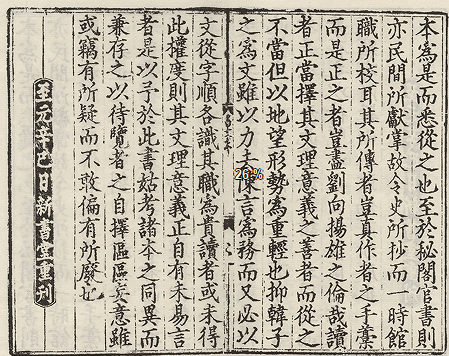 本為是而悉從之也至於秘閣官書則
亦民間所獻掌故令史所抄而一時館
職所校耳其所傳者豈真作者之手藁
而是正之者豈盡劉向揚雄之倫哉讀
者正當擇其文理意義之善者而從之
不當但以地望形勢為重輕也抑韓子
之為文雖以力去陳言為務而又必以
26%
文從字順各識其職為貴讀者或未得
此權度則其文理意義正自有未易言
者是以予於此書姑考諸本之同異而
兼存之以待覽者之自擇區區妄意雖
或竊有所疑而不敢偏有所廢也
至元辛巳日新書堂重刊